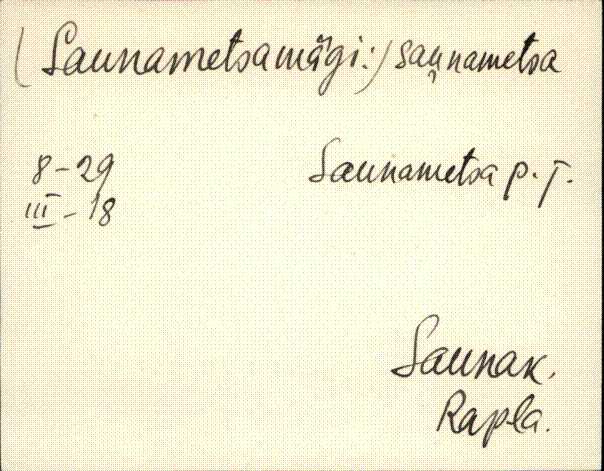 (Saunametsamägi:) sau̦nametsa
8-29 Saunametsa p. T.
III-18
Saunak.
Rapla.